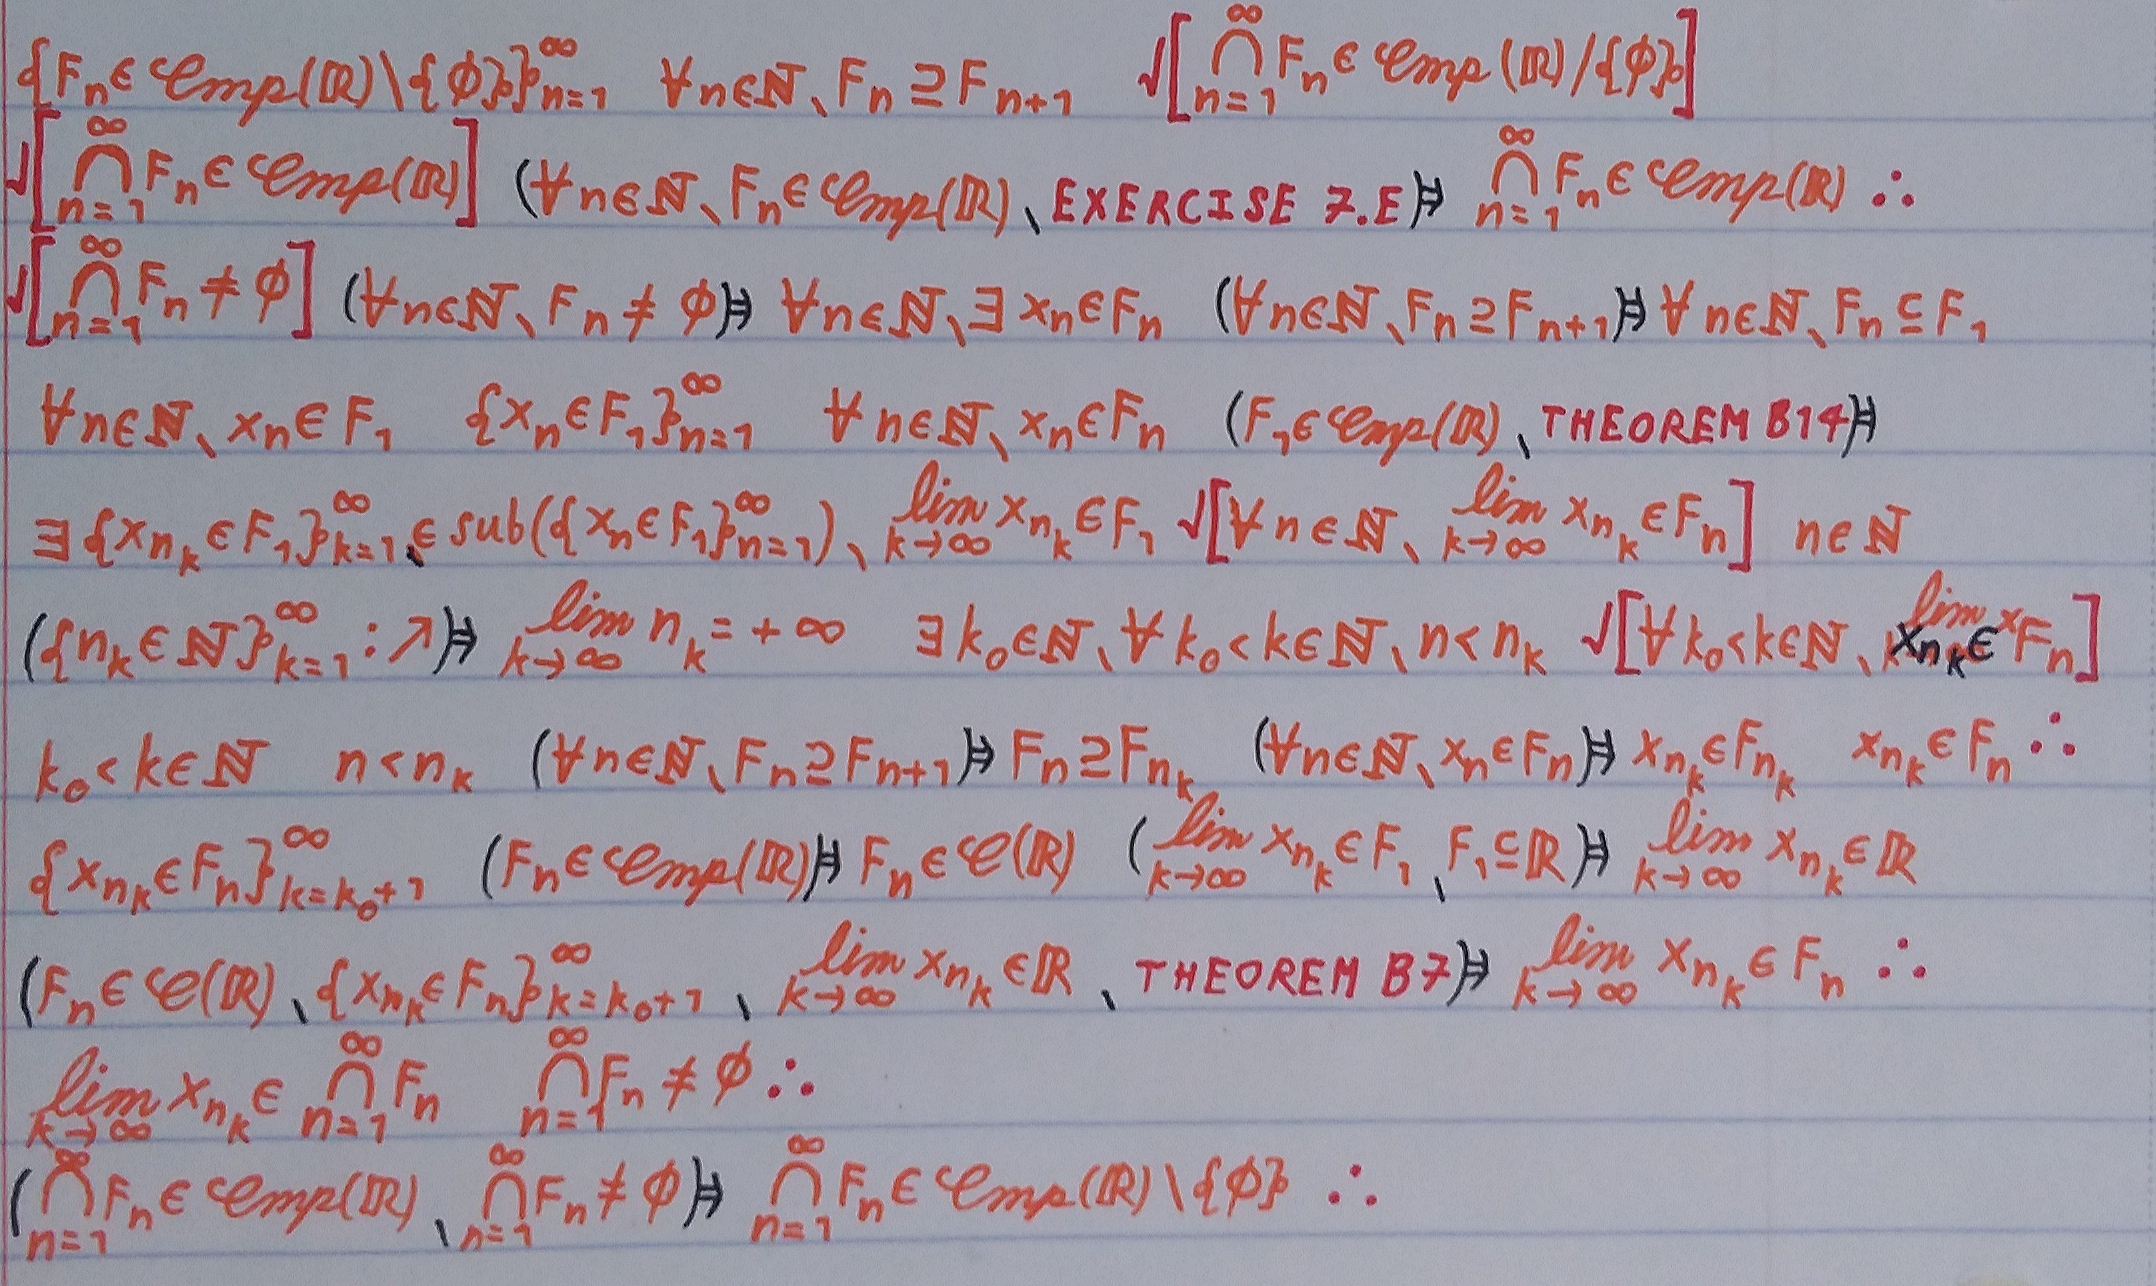 {Fₙ ∈ Cmp(ℝ)\{ϕ}}ₙ₌₁^∞ ∀n∈ℕ、Fₙ ⊇ Fₙ₊₁ √[⋂ₙ₌₁^∞ Fₙ ∈ Cmp(ℝ)/{ϕ}]
√[⋂ₙ₌₁^∞ Fₙ ∈ Cmp(ℝ)] (∀n∈ℕ、Fₙ ∈ Cmp(ℝ)、EXERCISE 7.E)⊨ ⋂ₙ₌₁^∞ Fₙ ∈ Cmp(ℝ) ∴
√[⋂ₙ₌₁^∞ Fₙ ≠ ϕ] (∀n∈ℕ、Fₙ ≠ ϕ)⊨ ∀n∈ℕ、∃ xₙ∈Fₙ (∀n∈ℕ、Fₙ ⊇ Fₙ₊₁)⊨ ∀n∈ℕ、Fₙ ⊆ F₁
∀n∈ℕ、xₙ ∈ F₁ {xₙ ∈ F₁}ₙ₌₁^∞ ∀n∈ℕ、xₙ∈Fₙ (F₁∈Cmp(ℝ)、THEOREM B14)⊨
∃{x_{n_k} ∈ F₁}_{k=1}^∞ ∈ sub({xₙ ∈ F₁}ₙ₌₁^∞)、lim_{k→∞} x_{n_k} ∈ F₁ √[∀n∈ℕ、lim_{k→∞} x_{n_k} ∈ Fₙ] n∈ℕ
({n_k ∈ ℕ}_{k=1}^∞ : ↗)⊨ lim_{k→∞} n_k = +∞ ∃k₀∈ℕ、∀k₀<k∈ℕ、n<n_k √[∀k₀<k∈ℕ、x_{n_k} ∈ Fₙ]
k₀<k∈ℕ n<n_k (∀n∈ℕ、Fₙ⊇Fₙ₊₁)⊨ Fₙ⊇F_{n_k} (∀n∈ℕ、xₙ∈Fₙ)⊨ x_{n_k}∈F_{n_k} x_{n_k}∈Fₙ ∴
{x_{n_k} ∈ Fₙ}_{k=k₀+1}^∞ (Fₙ∈Cmp(ℝ))⊨ Fₙ∈C(ℝ) (lim_{k→∞} x_{n_k} ∈ F₁、F₁⊆ℝ)⊨ lim_{k→∞} x_{n_k} ∈ ℝ
(Fₙ∈C(ℝ)、{x_{n_k} ∈ Fₙ}_{k=k₀+1}^∞、lim_{k→∞} x_{n_k} ∈ ℝ、THEOREM B7)⊨ lim_{k→∞} x_{n_k} ∈ Fₙ ∴
lim_{k→∞} x_{n_k} ∈ ⋂ₙ₌₁^∞ Fₙ ⋂ₙ₌₁^∞ Fₙ ≠ ϕ ∴
(⋂ₙ₌₁^∞ Fₙ ∈ Cmp(ℝ)、⋂ₙ₌₁^∞ Fₙ ≠ ϕ)⊨ ⋂ₙ₌₁^∞ Fₙ ∈ Cmp(ℝ)\{ϕ} ∴